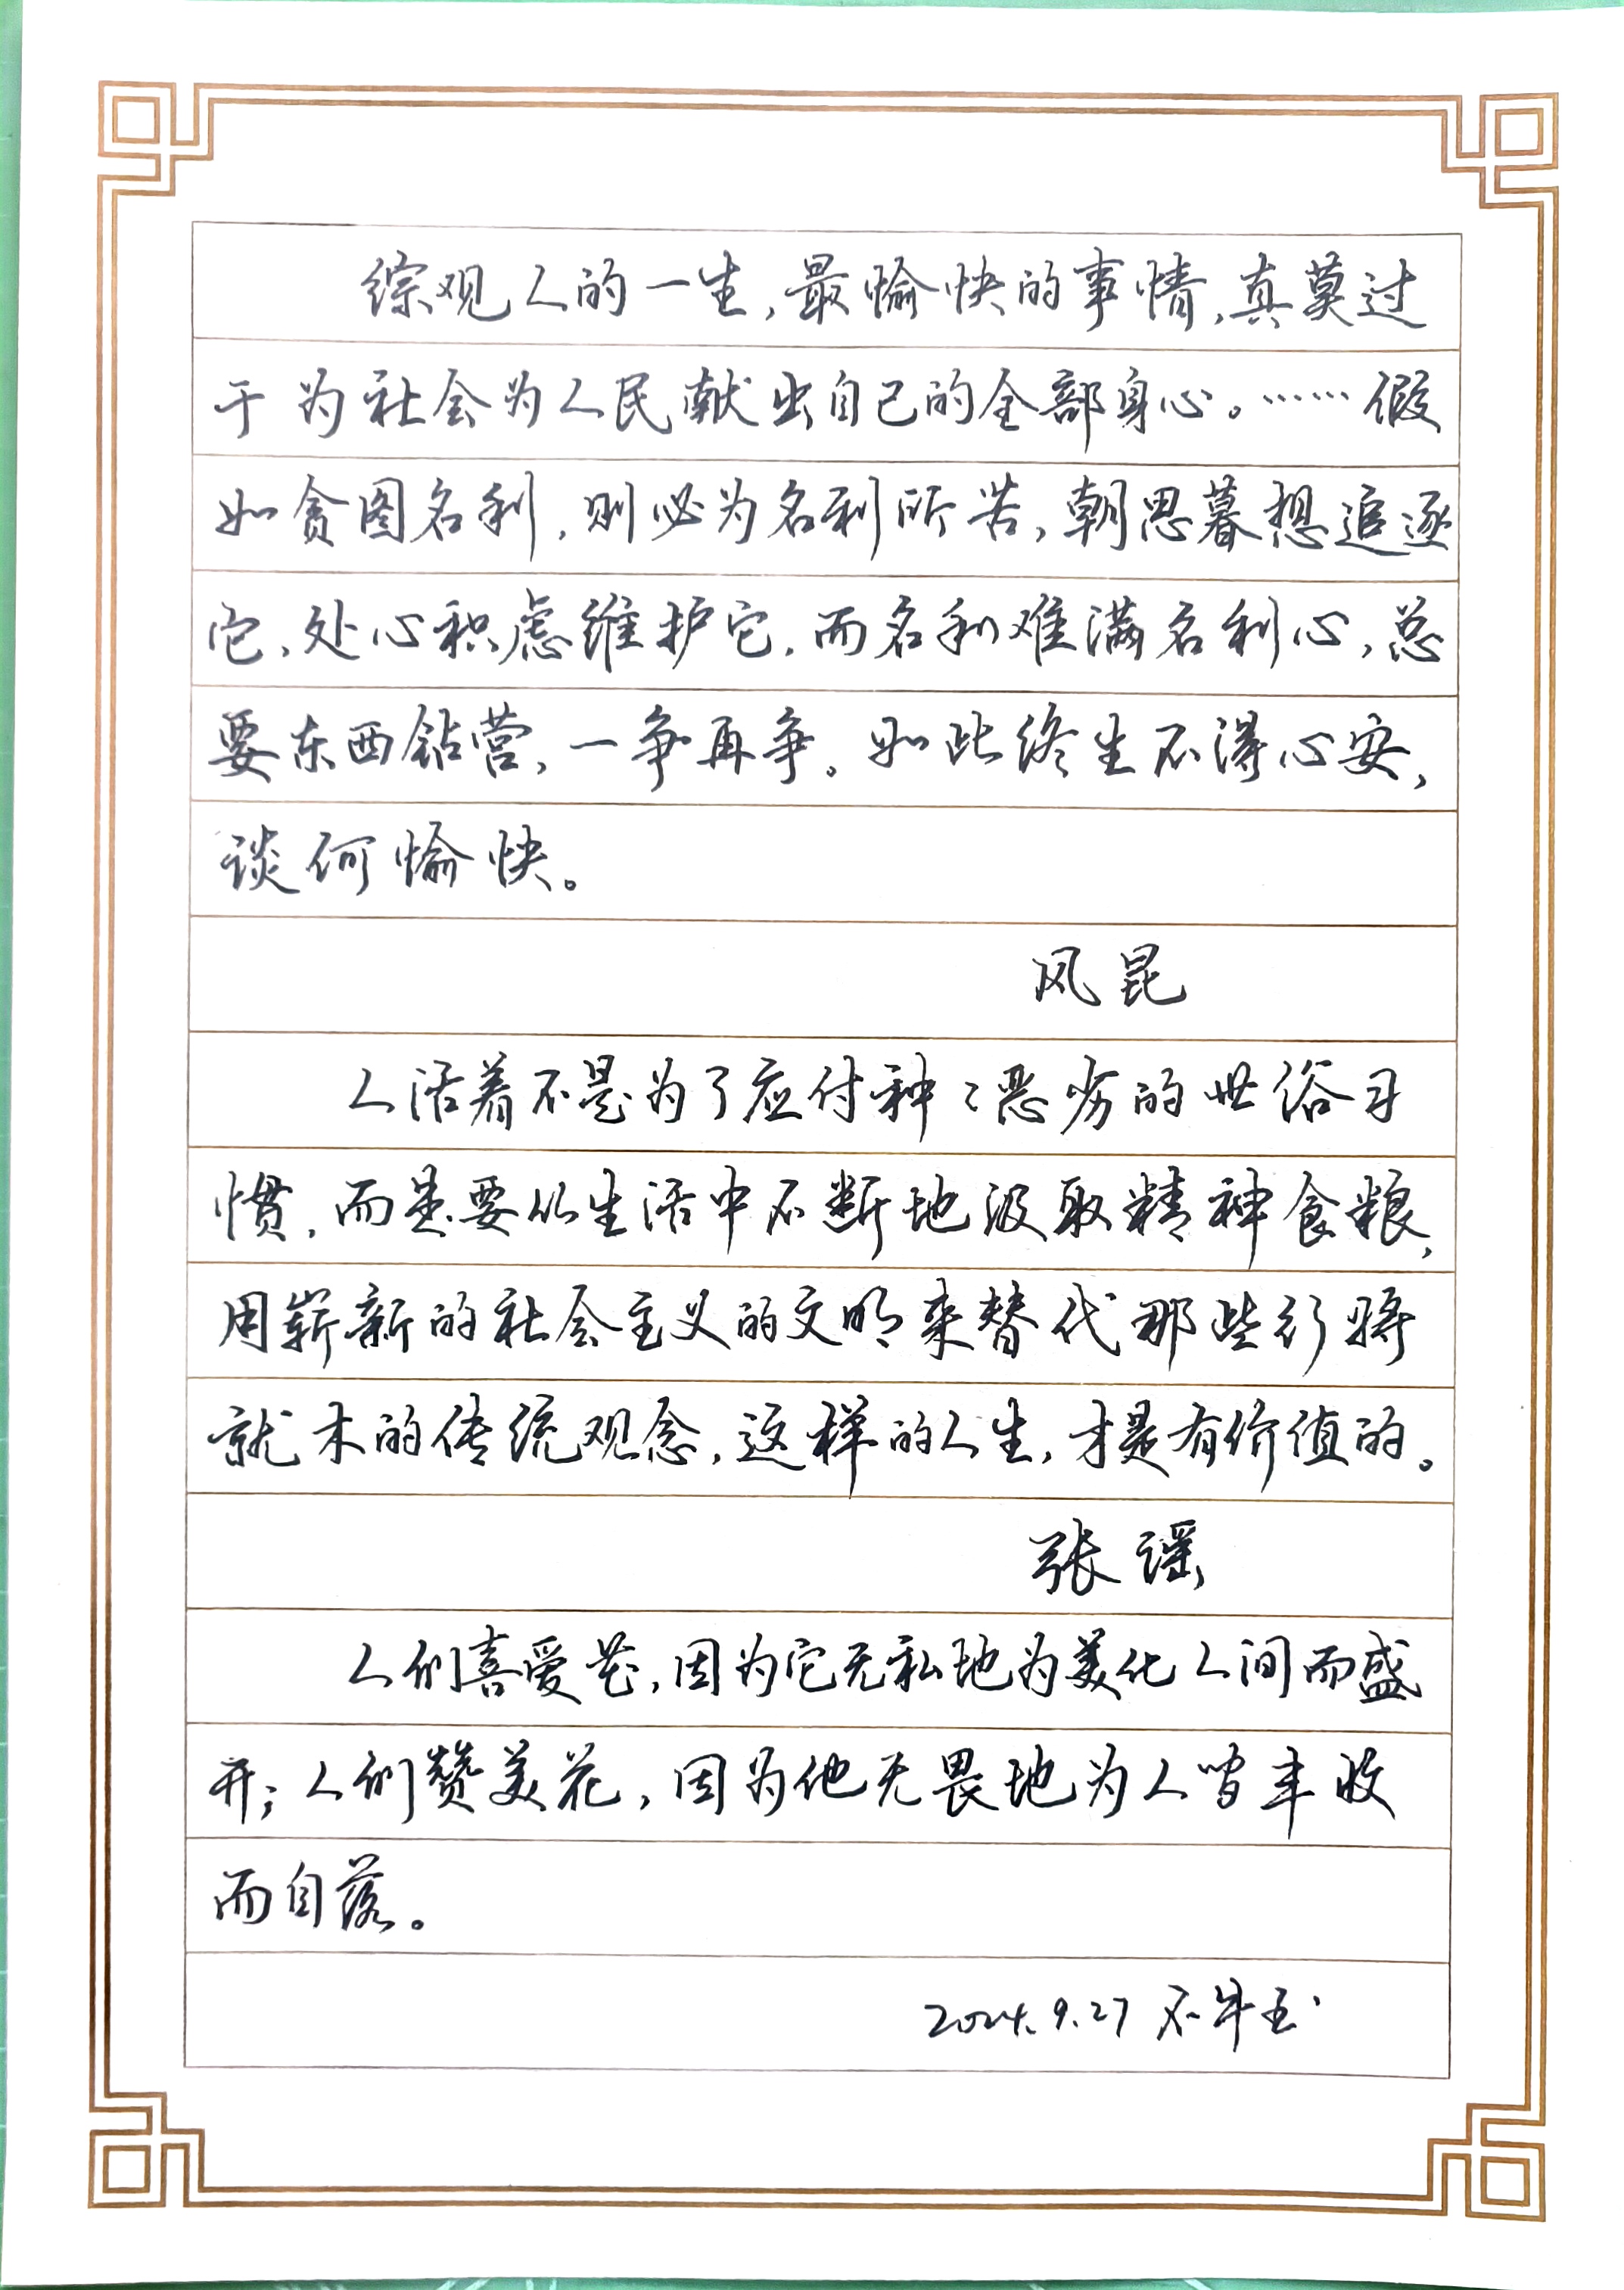 综观人的一生,最愉快的事情,真莫过
于为社会为人民献出自己的全部身心。……假
如贪图名利,则必为名利所苦,朝思暮想追逐
它,处心积虑维护它,而名利难满名利心,总
要东西钻营,一争再争。如此终生不得心安,
谈何愉快。
风昆
人活着不是为了应付种々恶劣的世俗习
惯,而是要从生活中不断地汲取精神食粮,
用崭新的社会主义的文明来替代那些行将
就木的传统观念,这样的人生,才是有价值的。
张谣
人们喜爱花,因为它无私地为美化人间而盛
开;人们赞美花,因为他无畏地为人皆丰收
而自落。
2024.9.27